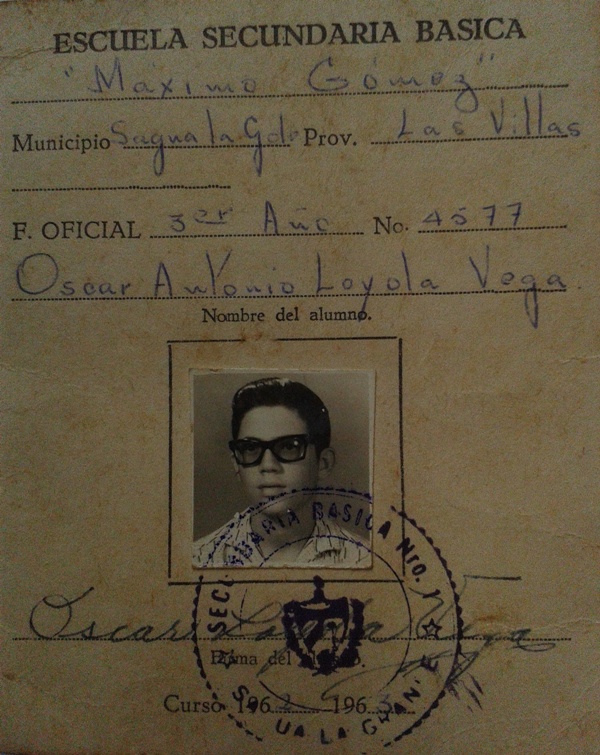 ESCUELA SECUNDARIA BASICA
"Máximo Gómez"
Municipio Sagua la Gde Prov. Las Villas
F. OFICIAL 3er Año No. 4577
Oscar Antonio Loyola Vega
Nombre del alumno.
SECUNDARIA BASICA Nro. 1
Oscar Loyola Vega
Firma del alumno.
Curso 1962 196
SAGUA LA GRANDE